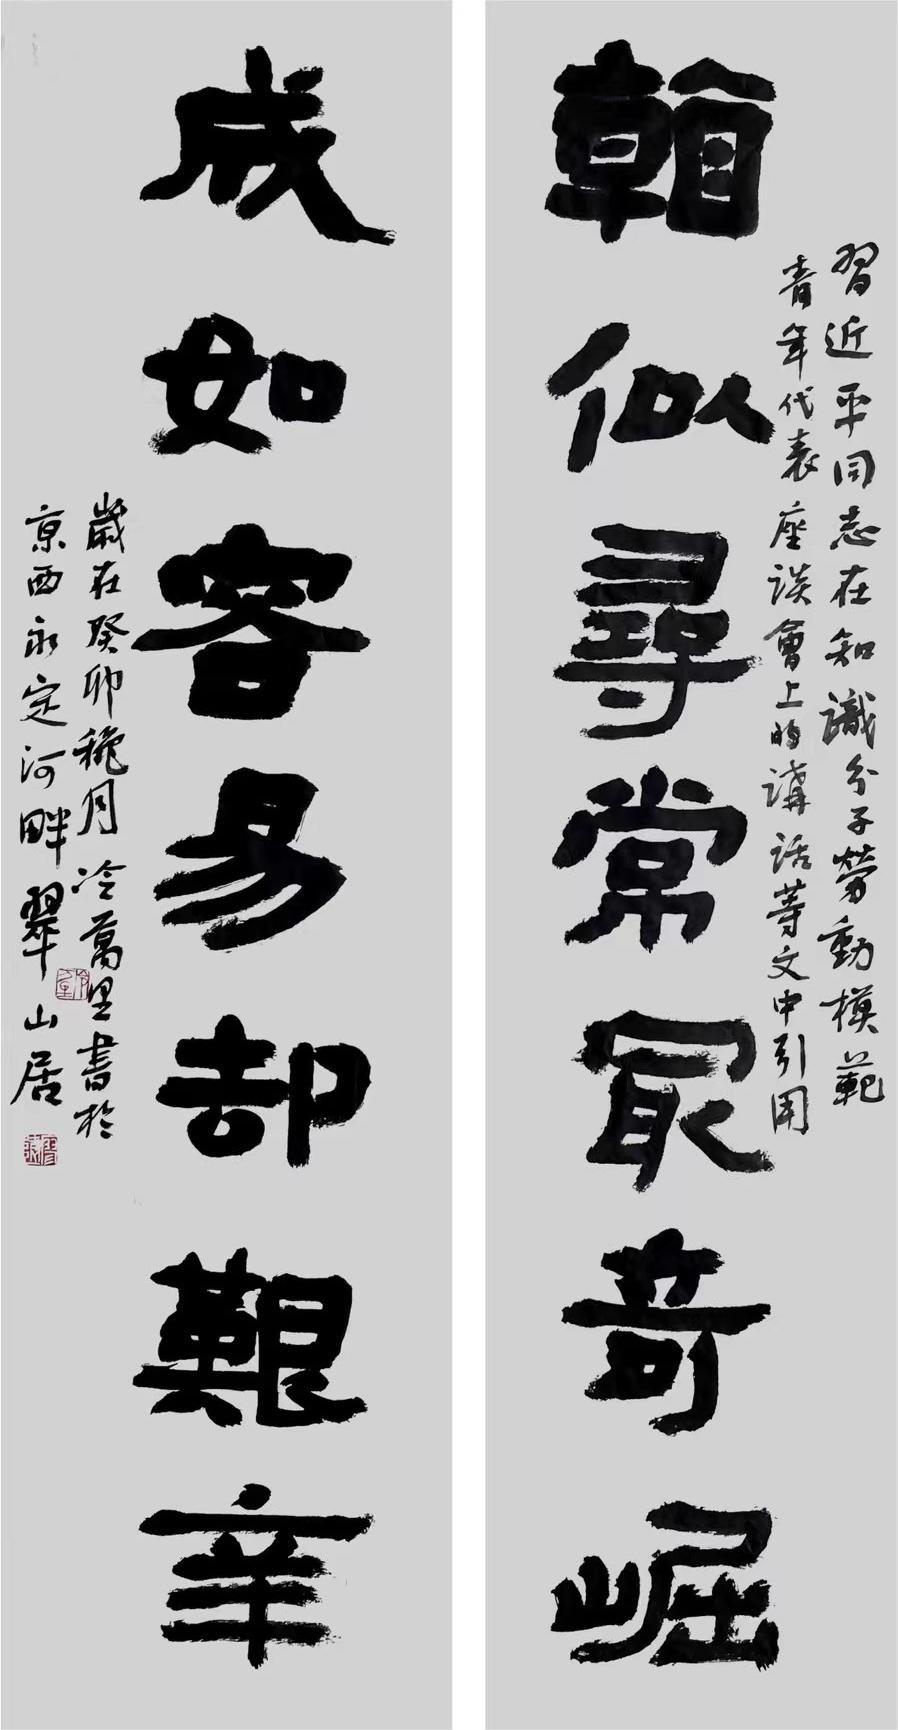 習近平同志在知識分子勞動模範
青年代表座談會上的講話等文中引用
看似尋常冣奇崛
成如容易却艱辛
歲在癸卯穐月冷萬里書於
京西永定河畔翠山居